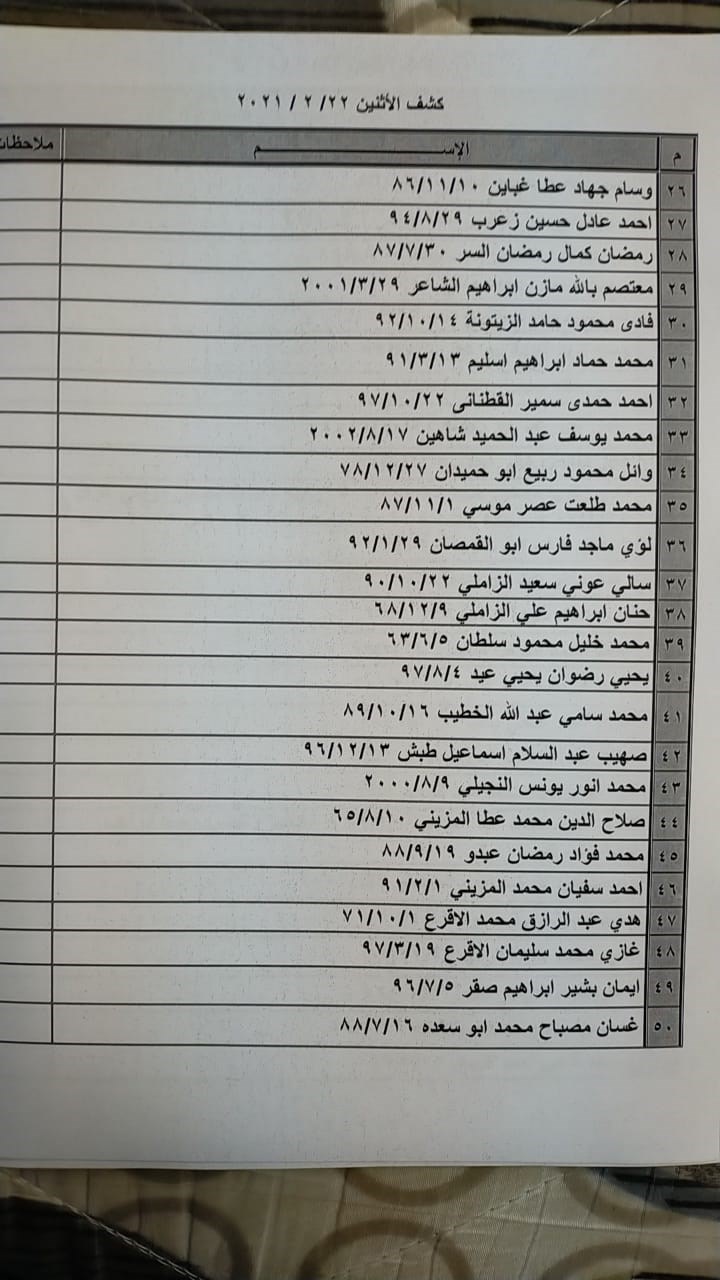 كشف الأثنين ٢٢/ ٢ / ٢٠٢١
م الإســـــــــم ملاحظات
٢٦ وسام جهاد عطا غباين ٨٦/١١/١٠
٢٧ احمد عادل حسين زعرب ٩٤/٨/٢٩
٢٨ رمضان كمال رمضان السر ٨٧/٧/٣٠
٢٩ معتصم بالله مازن ابراهيم الشاعر ٢٠٠١/٣/٢٩
٣٠ فادى محمود حامد الزيتونة ٩٢/١٠/١٤
٣١ محمد حماد ابراهيم اسليم ٩١/٣/١٣
٣٢ احمد حمدى سمير القطنانى ٩٧/١٠/٢٢
٣٣ محمد يوسف عبد الحميد شاهين ٢٠٠٢/٨/١٧
٣٤ وائل محمود ربيع ابو حميدان ٧٨/١٢/٢٧
٣٥ محمد طلعت عصر موسي ٨٧/١١/١
٣٦ لؤي ماجد فارس ابو القمصان ٩٢/١/٢٩
٣٧ سالي عوني سعيد الزاملي ٩٠/١٠/٢٢
٣٨ حنان ابراهيم علي الزاملي ٦٨/١٢/٩
٣٩ محمد خليل محمود سلطان ٦٣/٦/٥
٤٠ يحيي رضوان يحيي عيد ٩٧/٨/٤
٤١ محمد سامي عبد الله الخطيب ٨٩/١٠/١٦
٤٢ صهيب عبد السلام اسماعيل طبش ٩٦/١٢/١٣
٤٣ محمد انور يونس النجيلي ٢٠٠٠/٨/٩
٤٤ صلاح الدين محمد عطا المزيني ٦٥/٨/١٠
٤٥ محمد فؤاد رمضان عبدو ٨٨/٩/١٩
٤٦ احمد سفيان محمد المزيني ٩١/٢/١
٤٧ هدي عبد الرازق محمد الاقرع ٧١/١٠/١
٤٨ غازي محمد سليمان الاقرع ٩٧/٣/١٩
٤٩ ايمان بشير ابراهيم صقر ٩٦/٧/٥
٥٠ غسان مصباح محمد ابو سعده ٨٨/٧/١٦